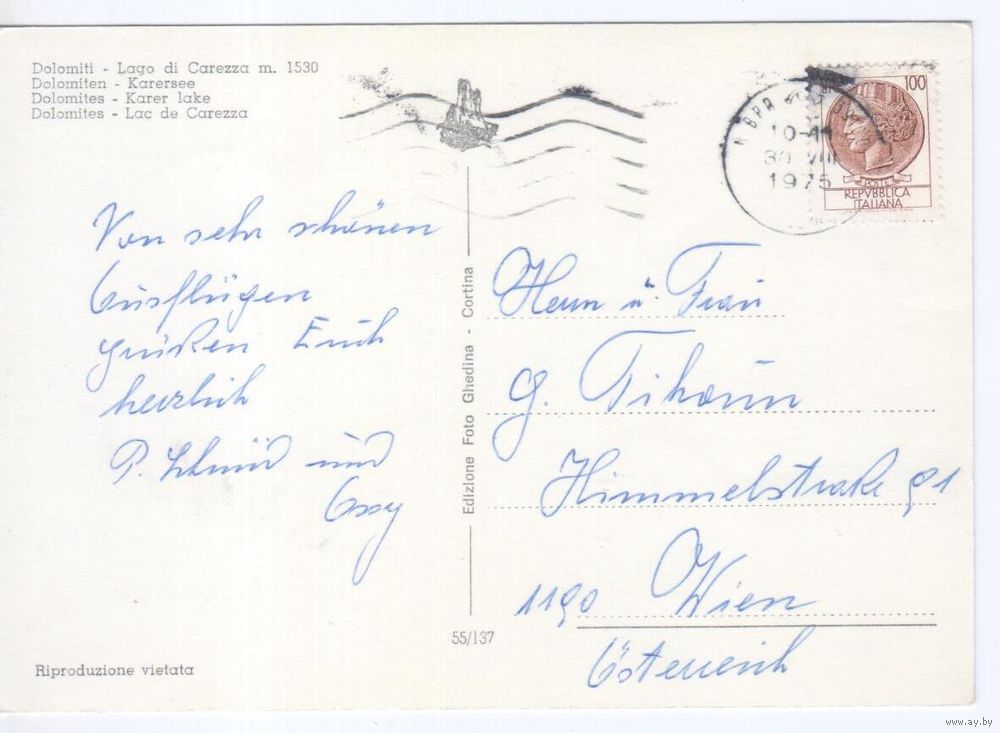 Dolomiti - Lago di Carezza m. 1530
Dolomiten - Karersee
Dolomites - Karer lake
Dolomites - Lac de Carezza
10-11
30 VIII
1975
100
POSTE
REPVBBLICA
ITALIANA
Von sehr schönen
Ausflügen
grüßen Euch
herzlich
P. Schmid und
Ossy
Edizione Foto Ghedina - Cortina
55/137
Herrn u. Frau
G.
Himmelstraße 91
1190 Wien
Österreich
Riproduzione vietata
www.ay.by